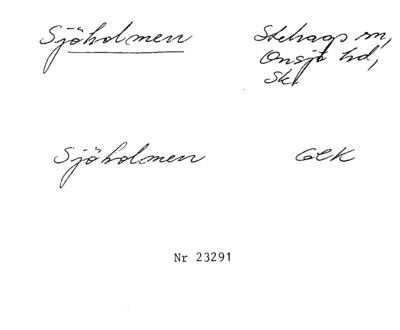 Sjöholmen Stehags sn,
Onsjö hd,
Sk.
Sjöholmen GEK
Nr 23291